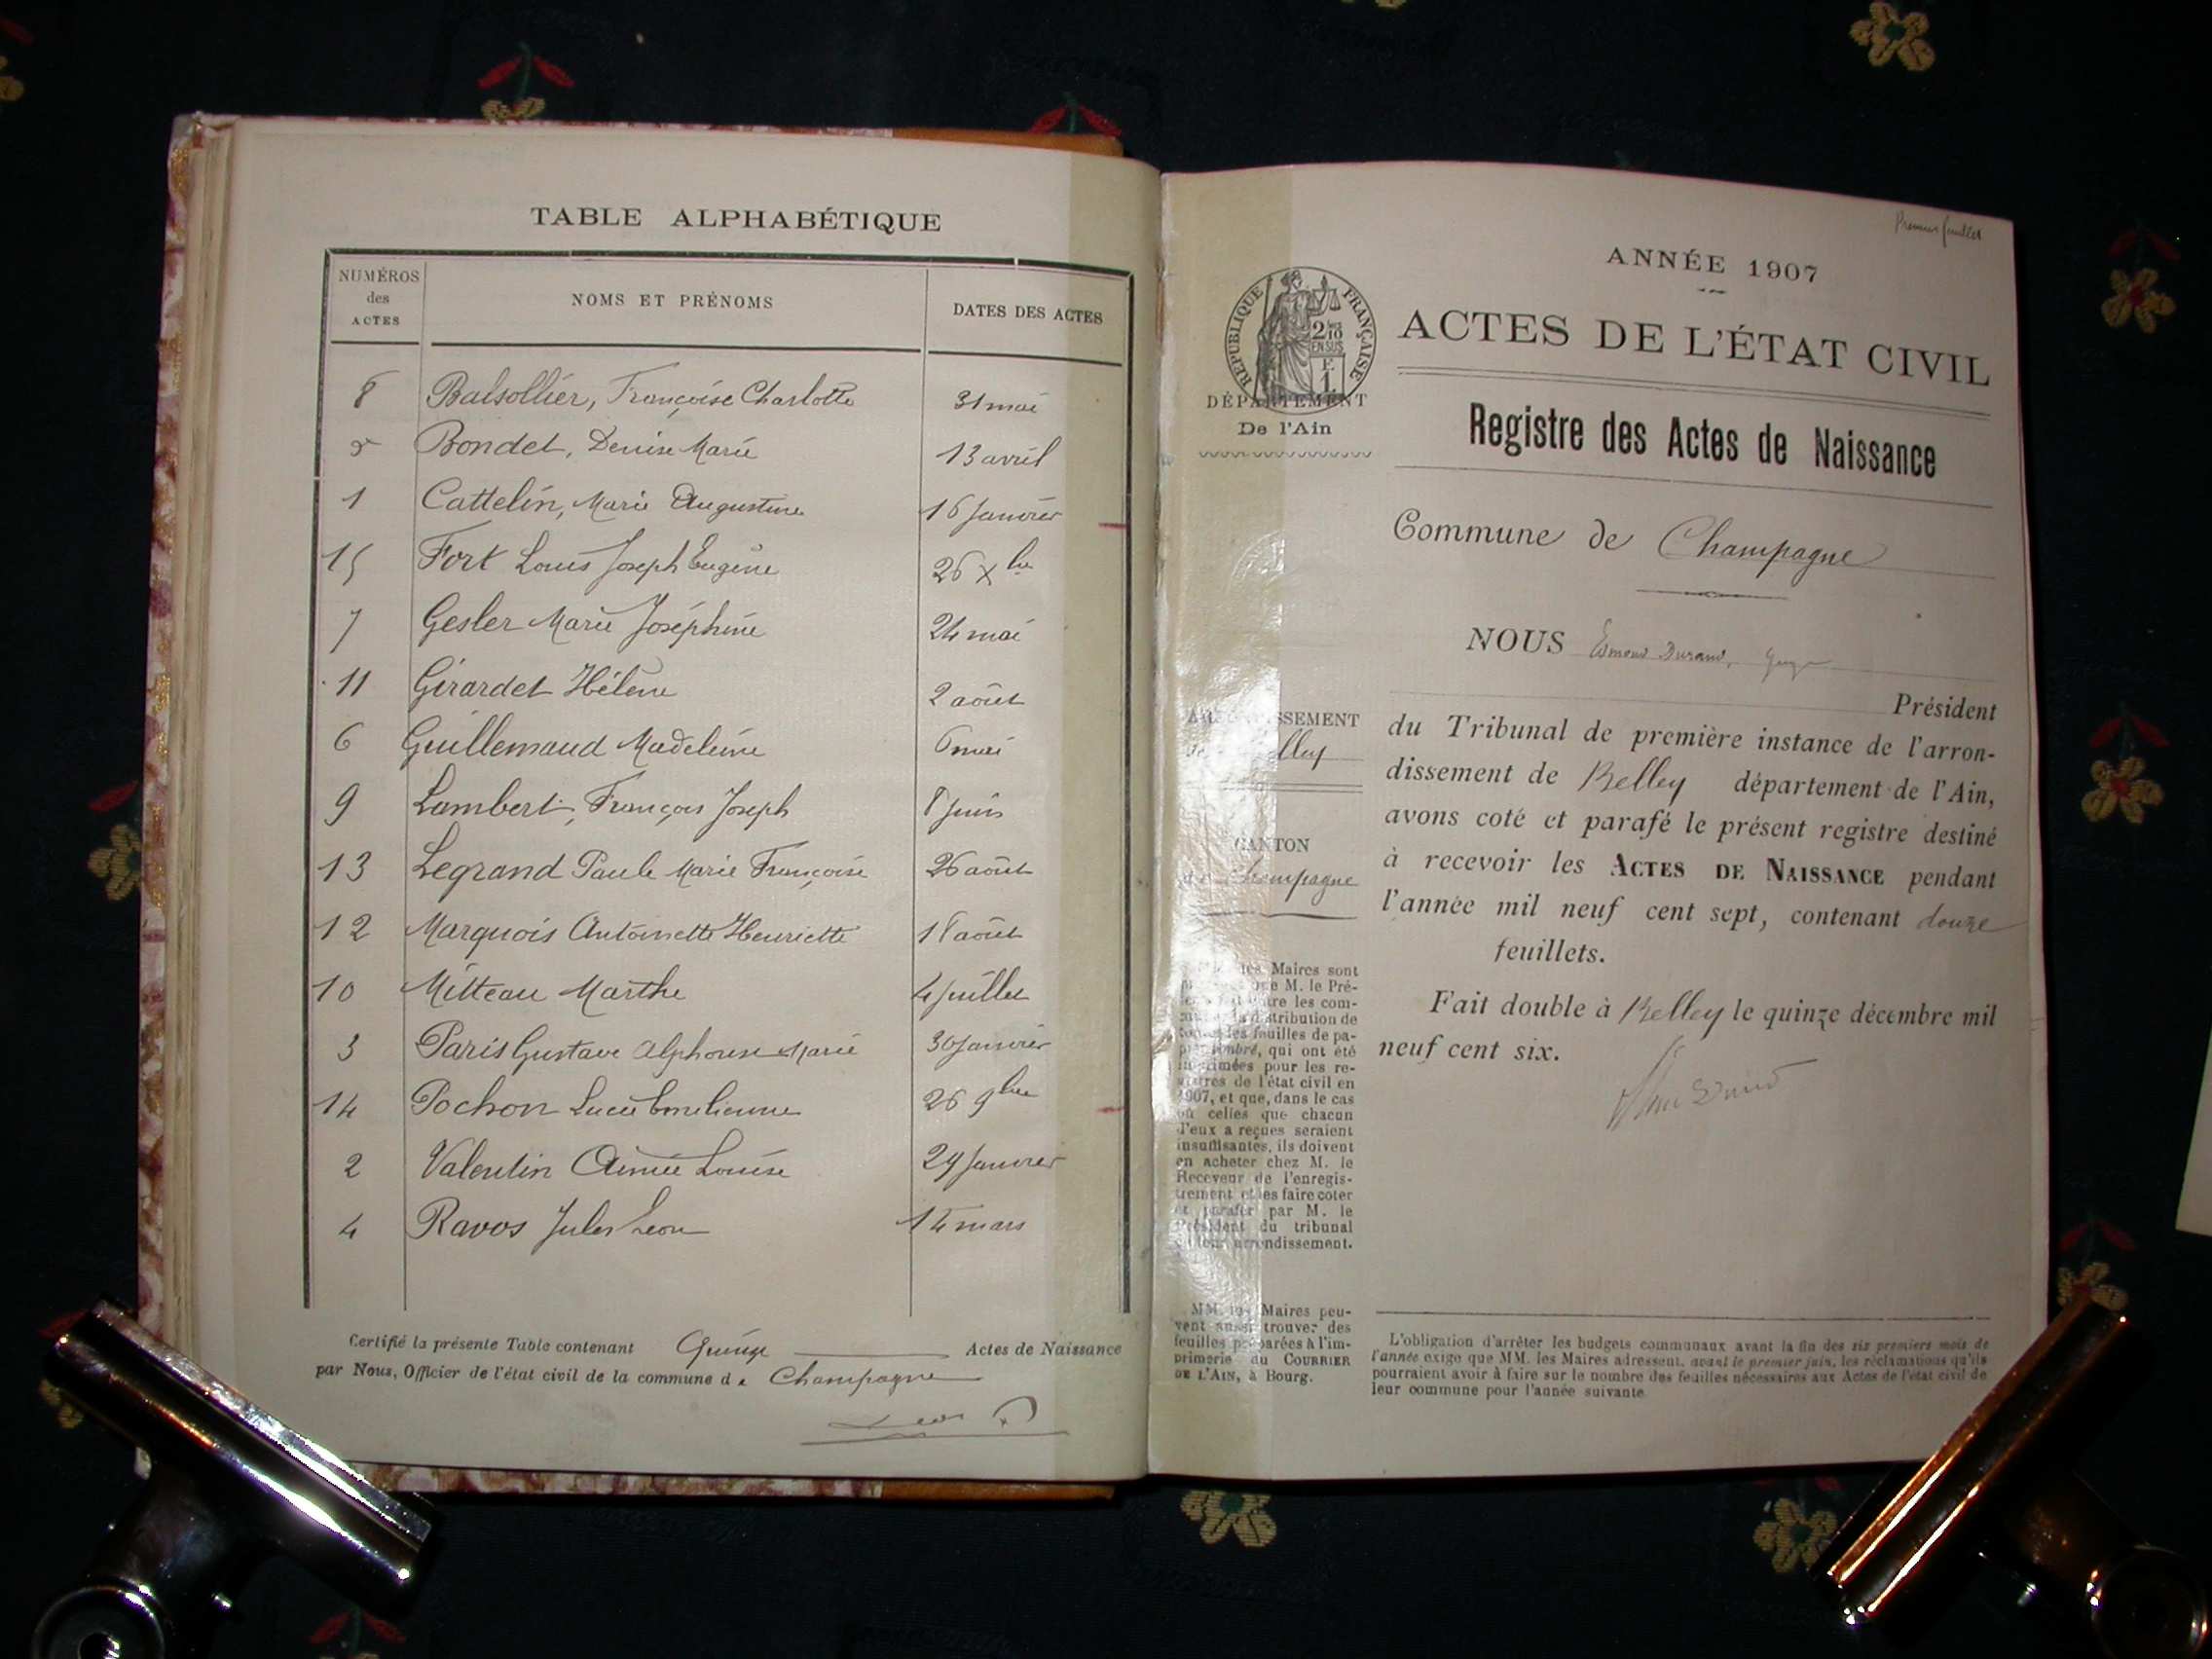 TABLE ALPHABÉTIQUE
NUMÉROS des ACTES
NOMS ET PRÉNOMS
DATES DES ACTES
8 Balsollier, Françoise Charlotte 31 mai
5 Bondet, Denise Marie 13 avril
1 Cattelin, Marie Augustine 16 Janvier
15 Fort Louis Joseph Eugène 26 Xbre
7 Gesler Marie Joséphine 24 mai
11 Girardet Hélène 2 août
6 Guillemaud Madeleine 6 mai
9 Lambert, François Joseph 8 Juin
13 Legrand Paule Marie Françoise 26 août
12 Marquois Antoinette Henriette 18 août
10 Mitteau Marthe 4 Juillet
3 Paris Gustave Alphonse Marie 30 Janvier
14 Pochon Lucie Emelienne 26 9bre
2 Valentin Aimée Louise 29 Janvier
4 Ravos Jules Léon 14 mars
Certifié la présente Table contenant Quinze Actes de Naissance
par Nous, Officier de l'état civil de la commune de Champagne
Premier feuillet
ANNÉE 1907
ACTES DE L'ÉTAT CIVIL
RÉPUBLIQUE FRANÇAISE
2/10
EN SUS
DÉPARTEMENT
De l'Ain
Registre des Actes de Naissance
Commune de Champagne
NOUS Edmond Durand,
Président
du Tribunal de première instance de l'arron-
dissement de Belley département de l'Ain,
avons coté et parafé le présent registre destiné
à recevoir les ACTES DE NAISSANCE pendant
l'année mil neuf cent sept, contenant douze
feuillets.
Fait double à Belley le quinze décembre mil
neuf cent six.
ARRONDISSEMENT
de Belley
CANTON
de Champagne
les Maires sont
que M. le Pré-
les com-
distribution de
les feuilles de pa-
timbré, qui ont été
imprimées pour les re-
gistres de l'état civil en
1907, et que, dans le cas
où celles que chacun
d'eux a reçues seraient
insuffisantes, ils doivent
en acheter chez M. le
Receveur de l'enregis-
trement et les faire coter
et parafer par M. le
Président du tribunal
de leur arrondissement.
MM. les Maires peu-
vent aussi trouver des
feuilles préparées à l'im-
primerie du COURRIER
DE L'AIN, à Bourg.
L'obligation d'arrêter les budgets communaux avant la fin des six premiers mois de
l'année exige que MM. les Maires adressent, avant le premier juin, les réclamations qu'ils
pourraient avoir à faire sur le nombre des feuilles nécessaires aux Actes de l'état civil de
leur commune pour l'année suivante